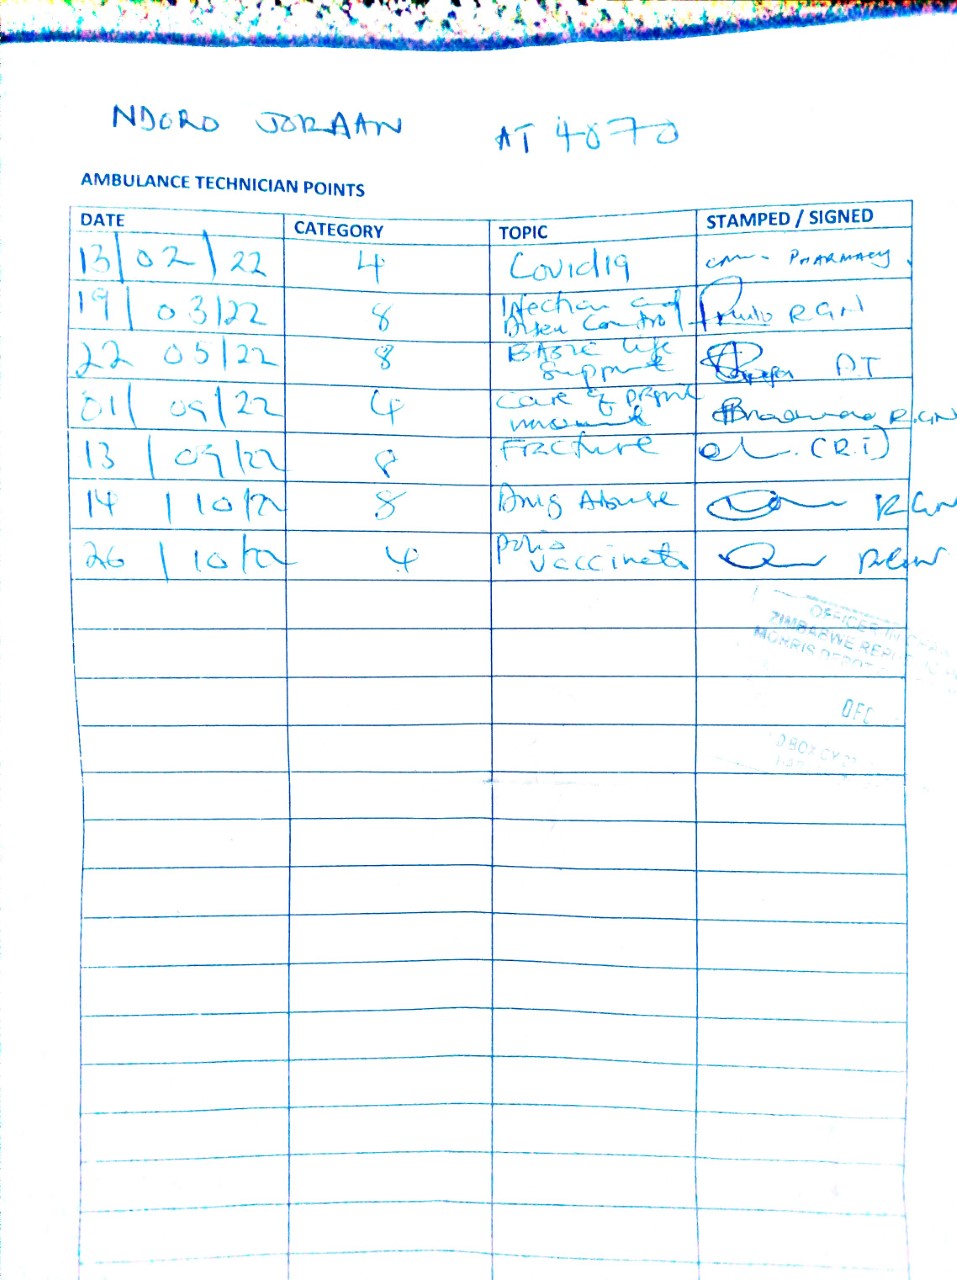 NDORO JORAAN AT 4070
AMBULANCE TECHNICIAN POINTS
DATE CATEGORY TOPIC STAMPED / SIGNED
13/02/22 4 Covid19 PHARMACY
19/03/22 8 Infection and Control RGN
22 05/22 8 Basic life support AT
01/09/22 4 Care of RGN
13/09/22 8 Fracture (R.T)
14/10/22 8 Drug Abuse RGN
26/10/22 4 Polio vaccinats RGN
OFFICER IN
ZIMBABWE REP
MORRIS DEPOT
BOX CY